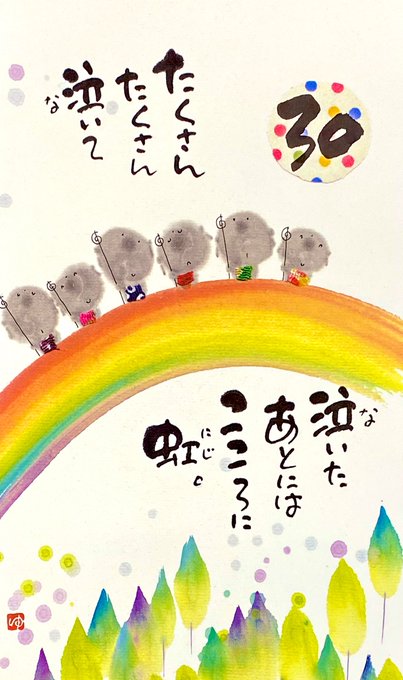 30
たくさん
たくさん
泣いて
な
泣いた
な
あとには
こころに
虹。
にじ
ゆ